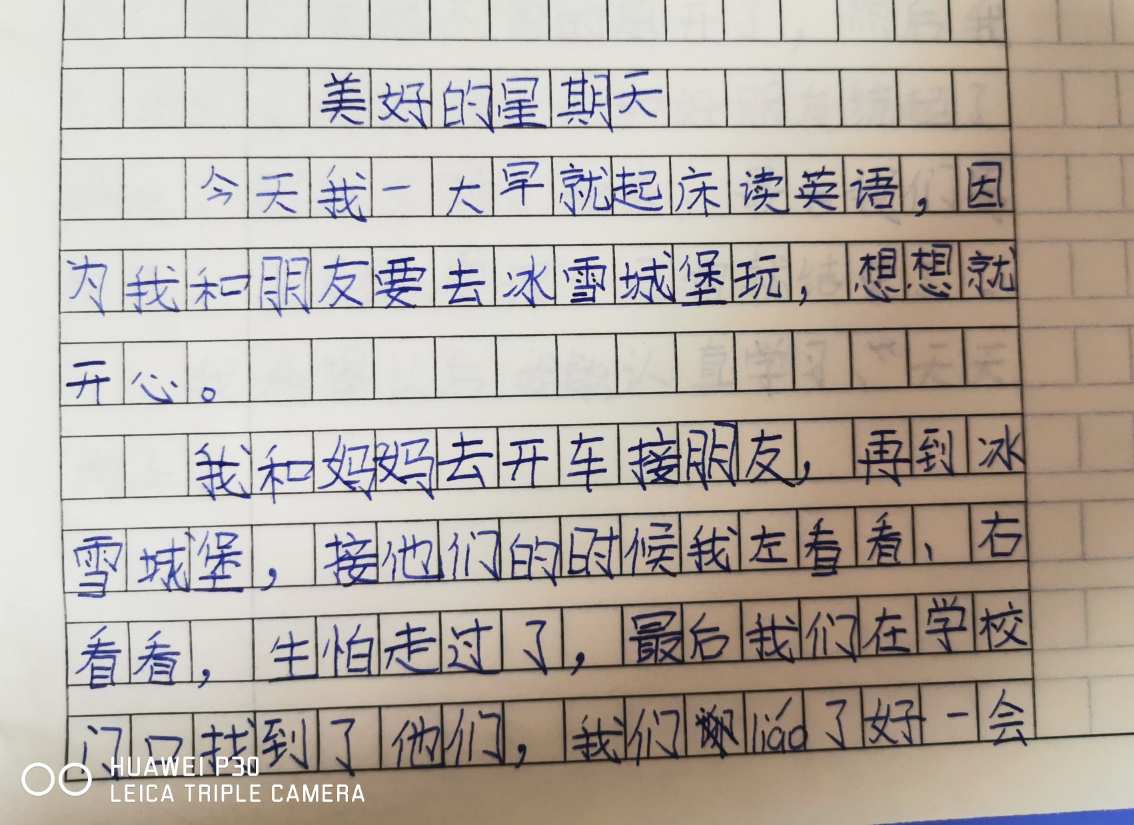 美好的星期天
今天我一大早就起床读英语,因
为我和朋友要去冰雪城堡玩,想想就
开心。
我和妈妈去开车接朋友,再到冰
雪城堡,接他们的时候我左看看、右
看看,生怕走过了,最后我们在学校
门口找到了他们,我们liáo了好一会
HUAWEI P30
LEICA TRIPLE CAMERA